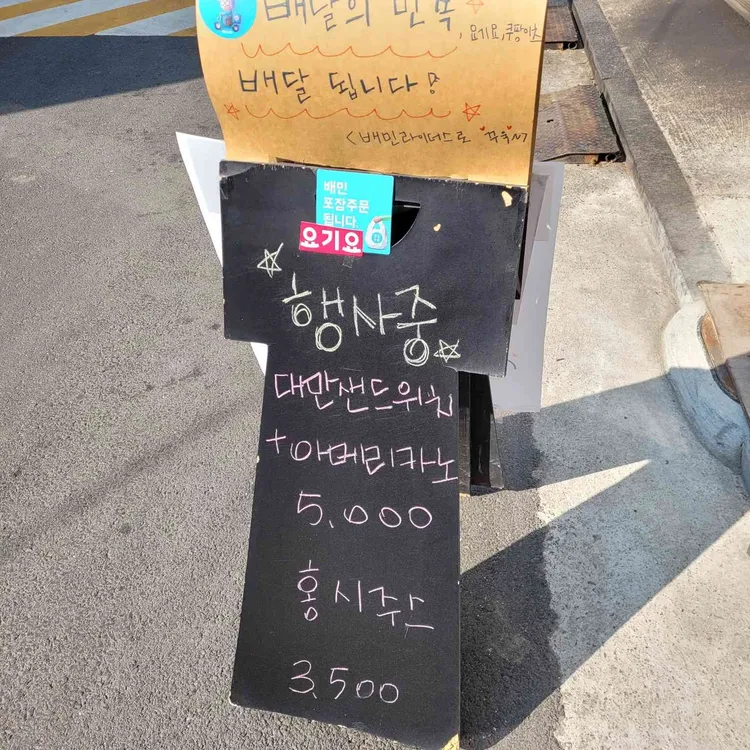 배달의 민족, 요기요, 쿠팡이츠
배달 됩니다!
<배민라이더스로 꾸욱>
배민
포장주문
됩니다.
요기요
행사중
대만샌드위치
+아메리카노
5,000
홍시주스
3,500